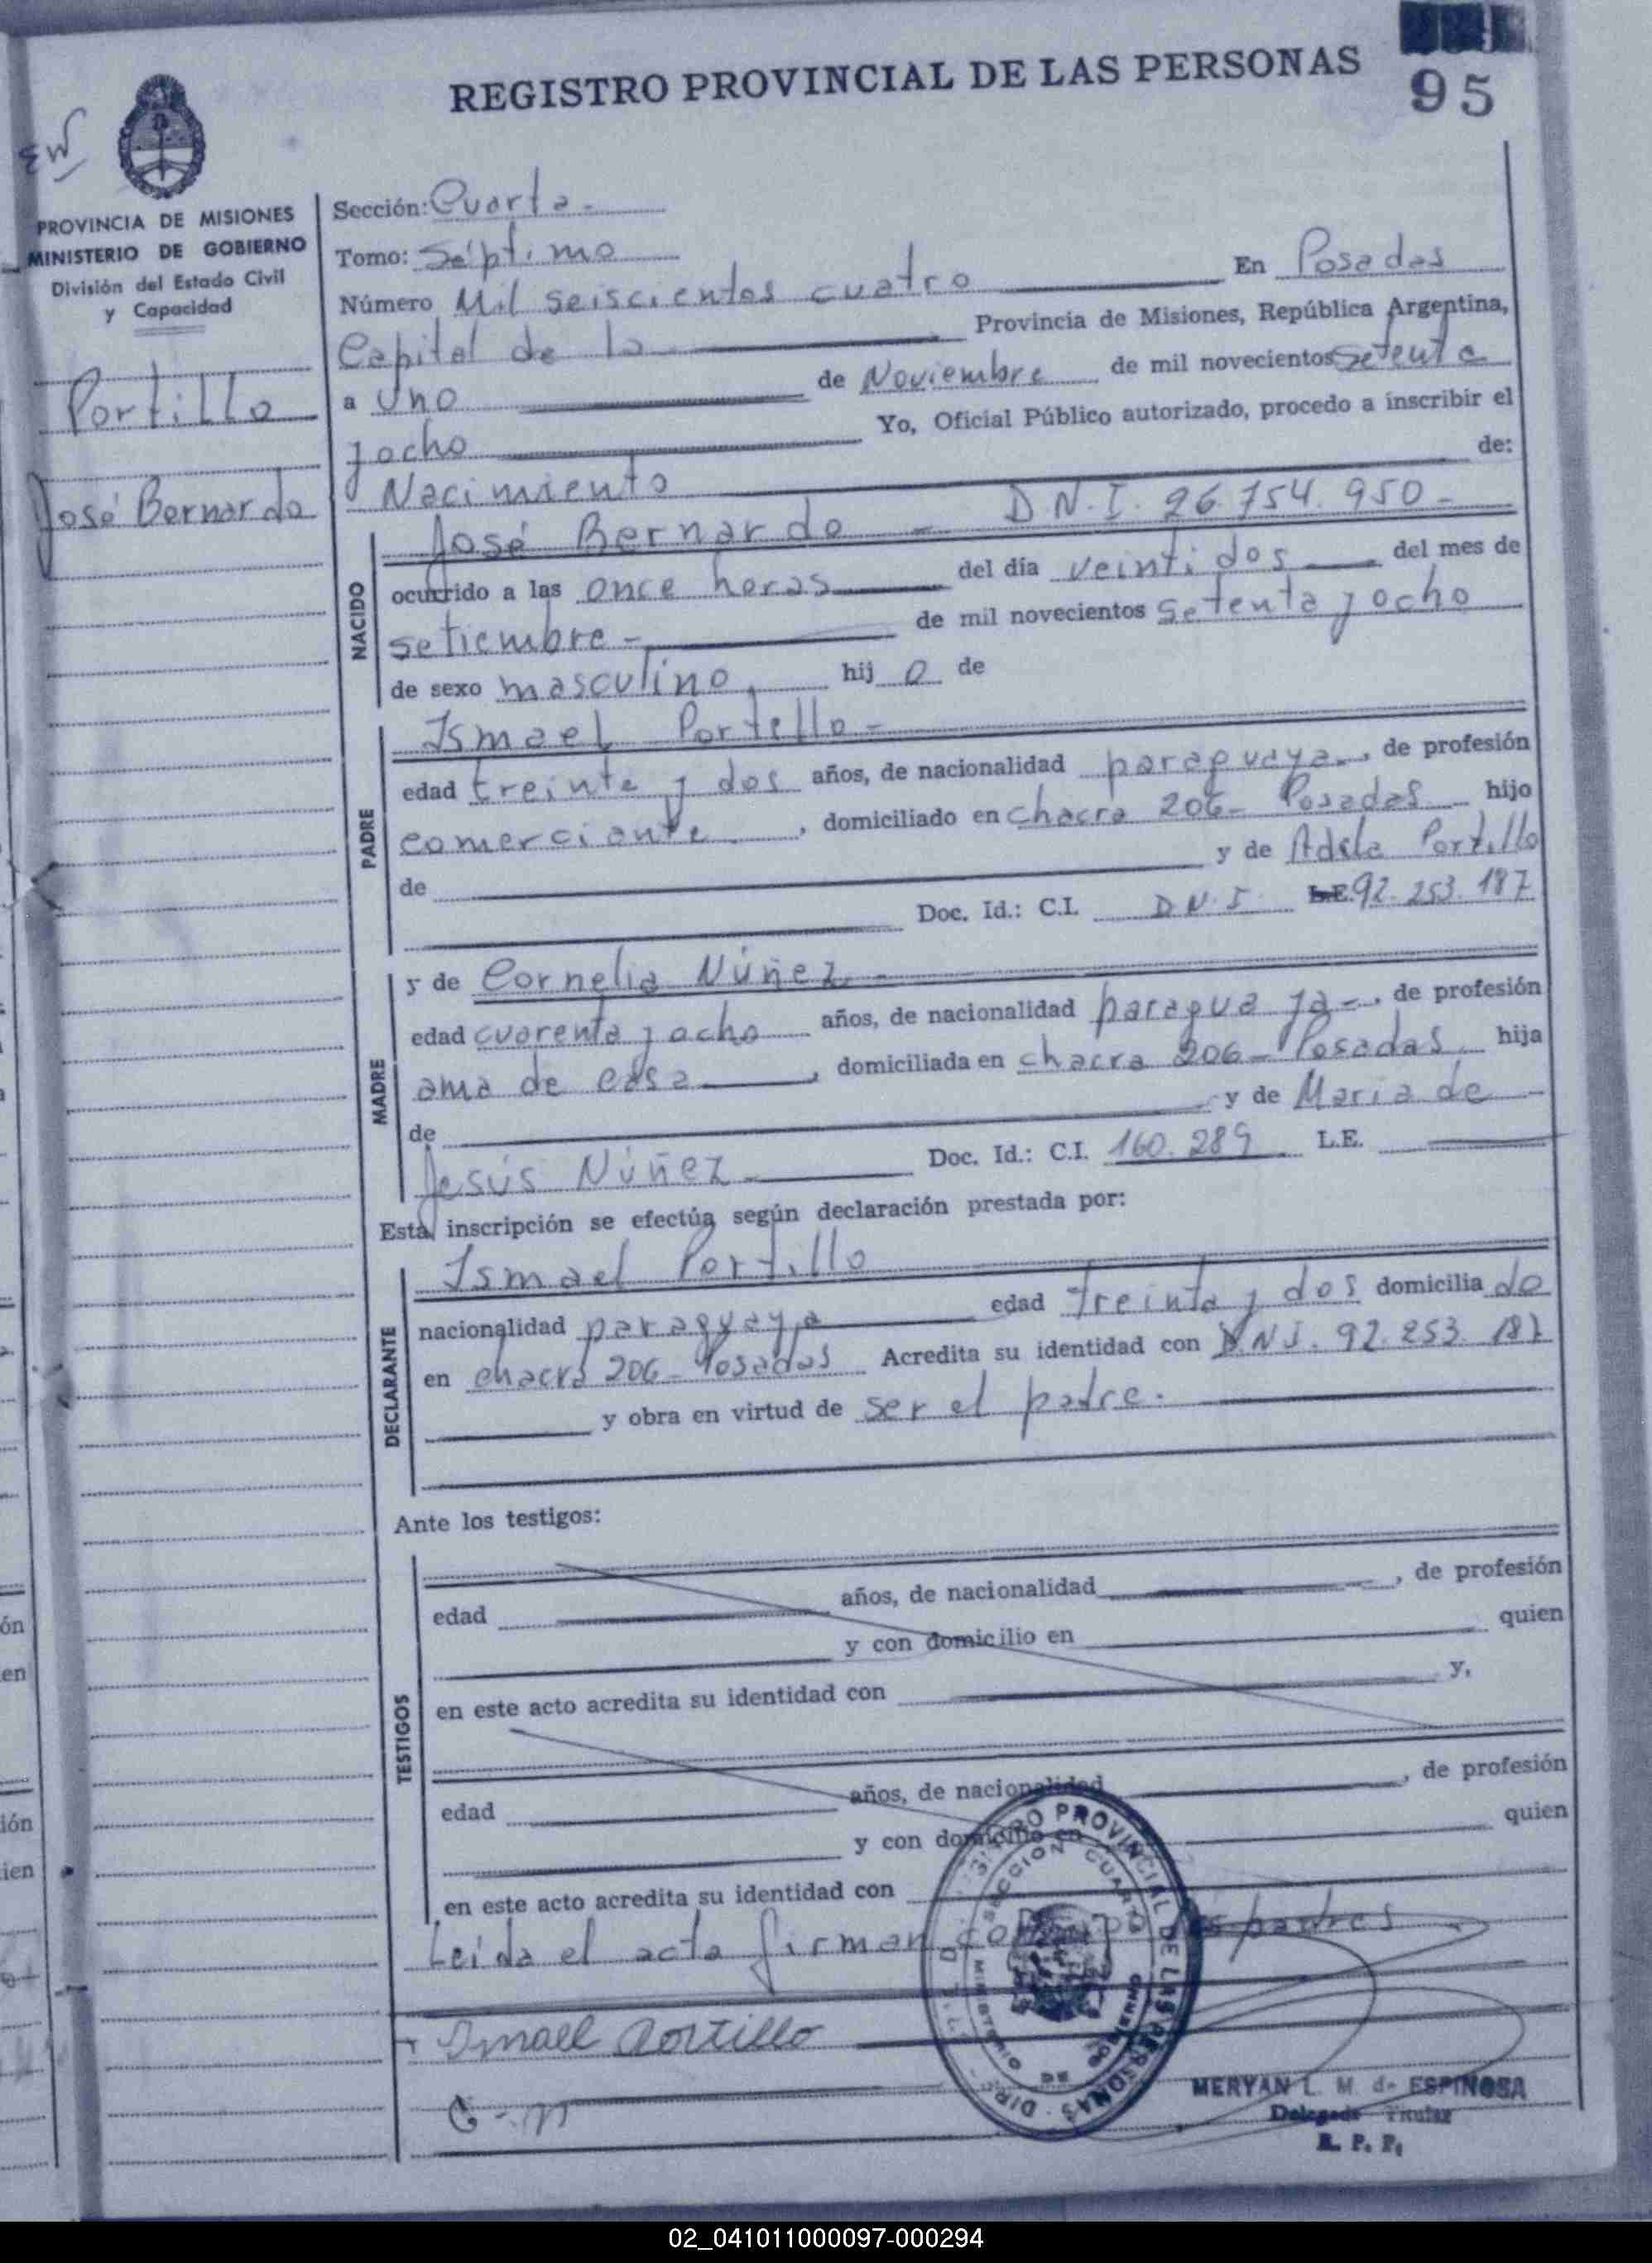 REGISTRO PROVINCIAL DE LAS PERSONAS
95
PROVINCIA DE MISIONES
MINISTERIO DE GOBIERNO
División del Estado Civil
y Capacidad
Portillo
José Bernardo
Sección: Cuarta -
Tomo: Séptimo
Número Mil seiscientos cuatro En Posadas
Capital de la Provincia de Misiones, República Argentina,
a Uno de Noviembre de mil novecientos setenta
y ocho Yo, Oficial Público autorizado, procedo a inscribir el
Nacimiento de:
NACIDO
José Bernardo - D.N.I. 26.754.950-
ocurrido a las once horas del día veintidos del mes de
setiembre - de mil novecientos setenta y ocho
de sexo masculino, hij o de
PADRE
Ismael Portillo -
edad treinta y dos años, de nacionalidad paraguaya, de profesión
comerciante, domiciliado en chacra 206- Posadas hijo
de y de Adela Portillo
Doc. Id.: C.I. D.N.I. L.E. 92.253.187
MADRE
y de Cornelia Núñez -
edad cuarenta y ocho años, de nacionalidad paraguaya -, de profesión
ama de casa, domiciliada en chacra 206- Posadas hija
de y de Maria de
Jesús Núñez - Doc. Id.: C.I. 160.289 L.E.
Esta inscripción se efectúa según declaración prestada por:
DECLARANTE
Ismael Portillo
nacionalidad paraguaya edad treinta y dos domicilia do
en chacra 206- Posadas Acredita su identidad con D.N.I. 92.253.187
y obra en virtud de ser el padre.
Ante los testigos:
TESTIGOS
edad años, de nacionalidad, de profesión
y con domicilio en quien
en este acto acredita su identidad con y,
edad años, de nacionalidad, de profesión
y con domicilio en quien
en este acto acredita su identidad con
Leída el acta firman padres
Ismael Portillo
C - n
REGISTRO PROVINCIAL DE LAS PERSONAS
SECCION CUARTA
MINISTERIO DE GOBIERNO
MERYAN L. M. de ESPINOSA
Delegado Titular
R. P. P.
ón
en
ión
ien
02_041011000097-000294